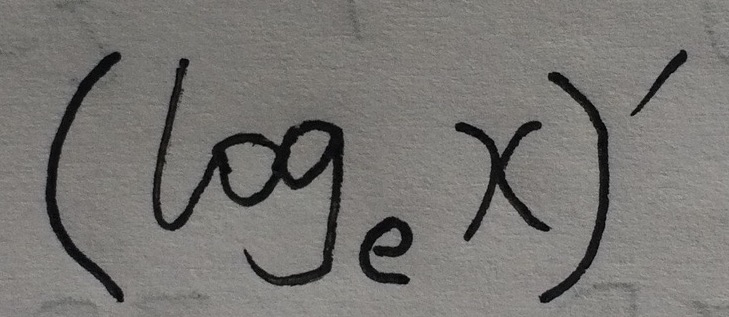 (logₑ x)′